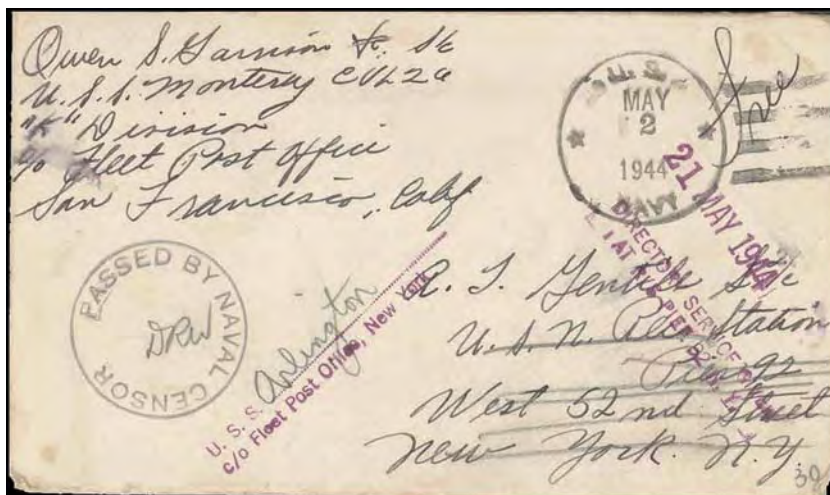 Owen S. Garrison Jr. SK
U.S.S. Monterey CVL26
"K" Division
c/o Fleet Post Office
San Francisco, Calif
U.S.
MAY
2
1944
NAVY
Free
21 MAY 1944
DIRECTORY SERVICE
AT PIER 92
PASSED BY NAVAL CENSOR
DRW
U. S. S. Arlington
c/o Fleet Post Office, New York
A. T. Gentile
U.S.N. Rec Station
Pier 92
West 52nd Street
New York. N.Y.